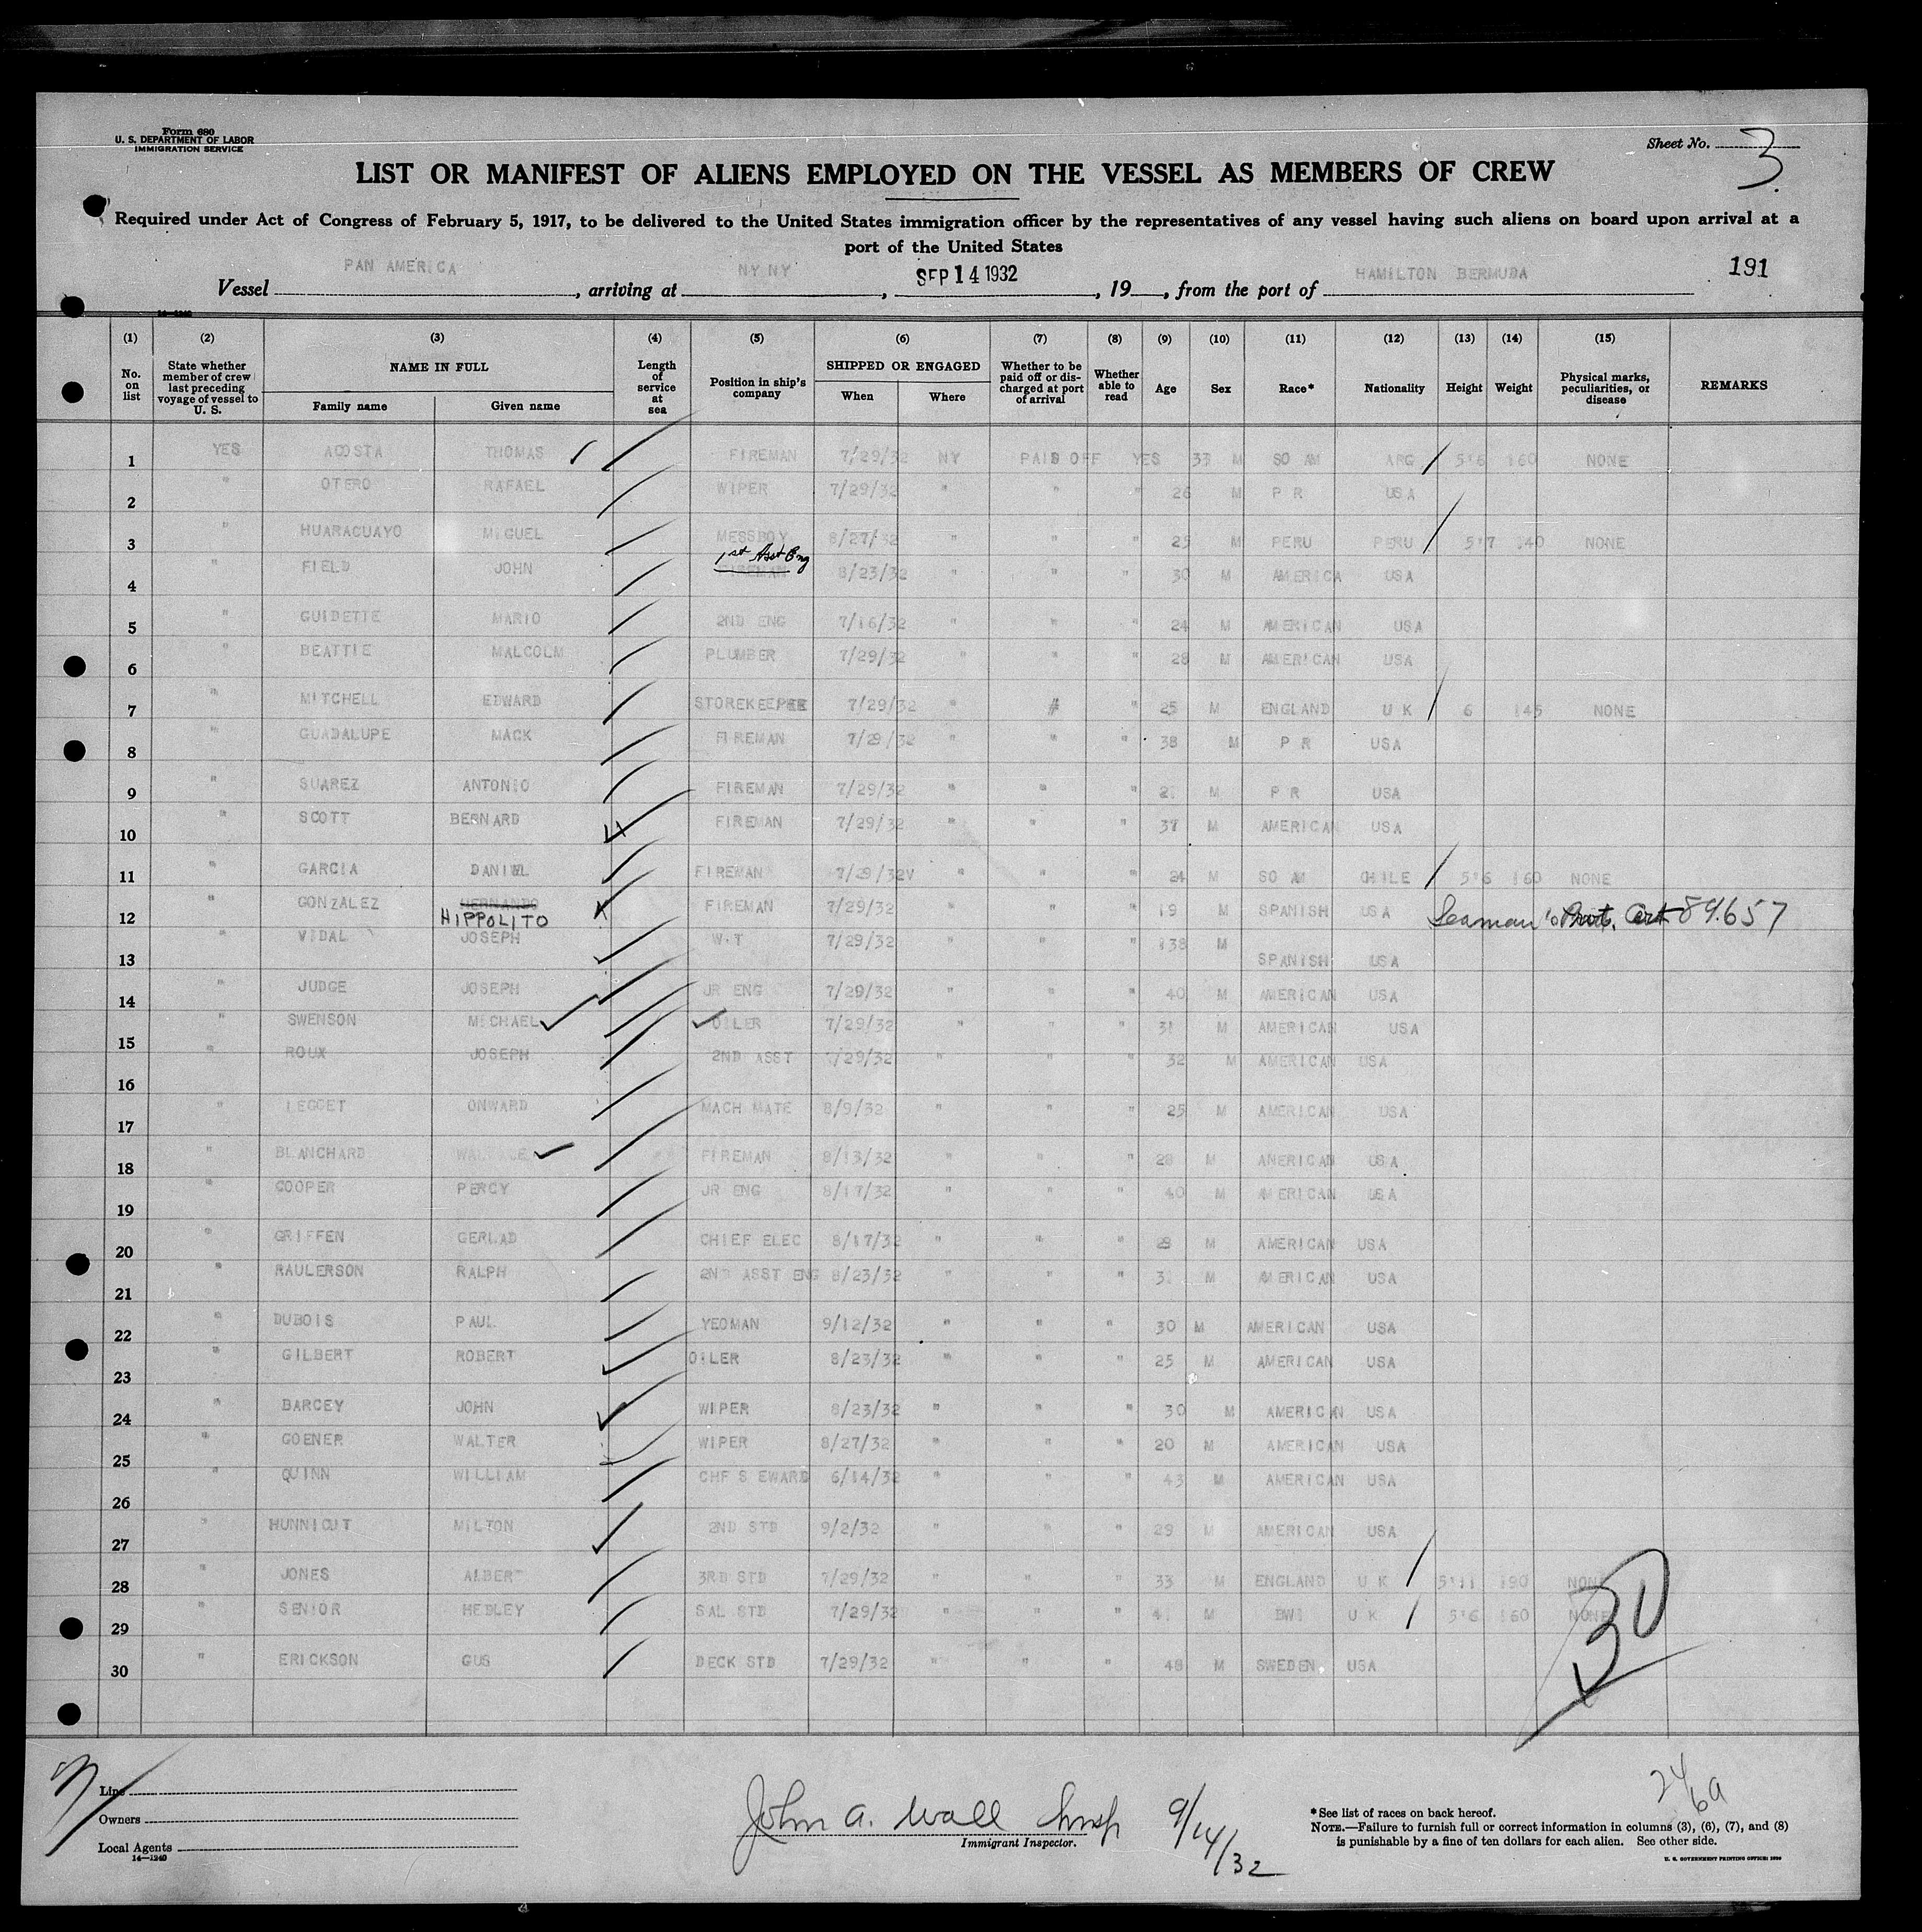 Form 680
U. S. DEPARTMENT OF LABOR
IMMIGRATION SERVICE
Sheet No. 3
LIST OR MANIFEST OF ALIENS EMPLOYED ON THE VESSEL AS MEMBERS OF CREW
Required under Act of Congress of February 5, 1917, to be delivered to the United States immigration officer by the representatives of any vessel having such aliens on board upon arrival at a
port of the United States
Vessel PAN AMERICA, arriving at NY NY, SEP 14 1932, 19, from the port of HAMILTON BERMUDA 191
(1) (2) (3) (4) (5) (6) (7) (8) (9) (10) (11) (12) (13) (14) (15)
No. on list State whether member of crew last preceding voyage of vessel to U. S. NAME IN FULL Family name Given name Length of service at sea Position in ship's company SHIPPED OR ENGAGED When Where Whether to be paid off or discharged at port of arrival Whether able to read Age Sex Race* Nationality Height Weight Physical marks, peculiarities, or disease REMARKS
1 YES ACOSTA THOMAS FIREMAN 7/29/32 NY PAID OFF YES 33 M SO AM ARG 5'6 160 NONE
2 " OTERO RAFAEL WIPER 7/29/32 " " " 26 M P R USA
3 " HUARACUAYO MIGUEL MESSBOY 8/27/32 " " " 25 M PERU PERU 5'7 140 NONE
4 " FIELD JOHN FIREMAN 1st Asst Eng 8/23/32 " " " 30 M AMERICA USA
5 " GUIDETTE MARIO 2ND ENG 7/16/32 " " " 24 M AMERICAN USA
6 " BEATTIE MALCOLM PLUMBER 7/29/32 " " " 28 M AMERICAN USA
7 " MITCHELL EDWARD STOREKEEPER 7/29/32 " " " 25 M ENGLAND U K 6 145 NONE
8 " GUADALUPE MACK FIREMAN 7/29/32 " " " 38 M P R USA
9 " SUAREZ ANTONIO FIREMAN 7/29/32 " " " M P R USA
10 " SCOTT BERNARD FIREMAN 7/29/32 " " " 37 M AMERICAN USA
11 " GARCIA DANIEL FIREMAN 7/29/32V " " " 24 M SO AM CHILE 5'6 160 NONE
12 " GONZALEZ HERNANDO HIPPOLITO FIREMAN 7/29/32 " " " 19 M SPANISH USA Seaman's Prot. Cert 89.657
13 " VIDAL JOSEPH W.T 7/29/32 " " " 138 M SPANISH USA
14 " JUDGE JOSEPH JR ENG 7/29/32 " " " 40 M AMERICAN USA
15 " SWENSON MICHAEL OILER 7/29/32 " " " 31 M AMERICAN USA
16 " ROUX JOSEPH 2ND ASST 7/29/32 " " " 32 M AMERICAN USA
17 " LEGGET ONWARD MACH MATE 8/9/32 " " " 25 M AMERICAN USA
18 " BLANCHARD WALLACE FIREMAN 8/13/32 " " " 28 M AMERICAN USA
19 " COOPER PERCY JR ENG 8/17/32 " " " 40 M AMERICAN USA
20 " GRIFFEN GERLAD CHIEF ELEC 8/17/32 " " " M AMERICAN USA
21 " RAULERSON RALPH 2ND ASST ENG 8/23/32 " " " 31 M AMERICAN USA
22 " DUBOIS PAUL YEOMAN 9/12/32 " " " 30 M AMERICAN USA
23 " GILBERT ROBERT OILER 8/23/32 " " " 25 M AMERICAN USA
24 " BARCEY JOHN WIPER 8/23/32 " " " 30 M AMERICAN USA
25 " GOENER WALTER WIPER 8/27/32 " " " 20 M AMERICAN USA
26 " QUINN WILLIAM CHF S EWARD 6/14/32 " " " 43 M AMERICAN USA
27 " HUNNICUT MILTON 2ND STD 9/2/32 " " " 29 M AMERICAN USA
28 " JONES ALBERT 3RD STD 7/29/32 " " " 33 M ENGLAND U K 5'11 190 NONE
29 " SENIOR HEDLEY SAL STD 7/29/32 " " " 41 M BWI U K 5'6 160 NONE
30 " ERICKSON GUS DECK STD 7/29/32 " " " 48 M SWEDEN USA
30
Line
Owners
Local Agents
14—1240
John A. Wall Insp 9/14/32
Immigrant Inspector.
*See list of races on back hereof.
NOTE.—Failure to furnish full or correct information in columns (3), (6), (7), and (8)
is punishable by a fine of ten dollars for each alien. See other side.